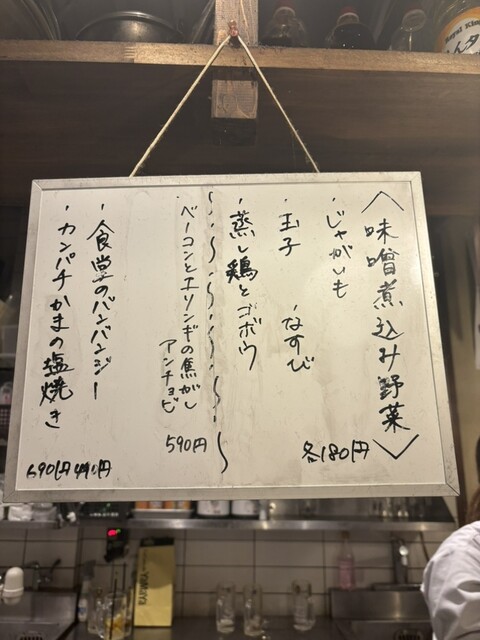 〈味噌煮込み野菜〉
・じゃがいも
・玉子 ・なすび
・蒸し鶏とゴボウ
各180円
・ベーコンとエリンギの焦がし
アンチョビ
590円
・食堂のバンバンジー
490円
・カンパチかまの塩焼き
690円
Royal
KARINKA